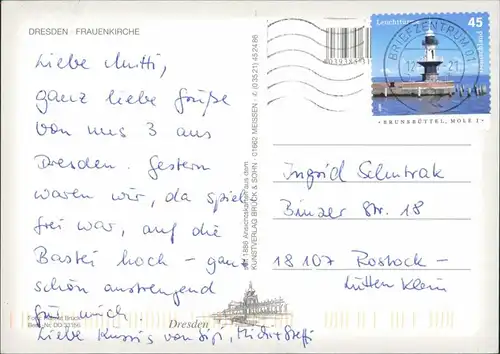 DRESDEN · FRAUENKIRCHE
Liebe Mutti,
ganz liebe Grüße
von uns 3 aus
Dresden. Gestern
waren wir, da spiel-
frei war, auf die
Bastei hoch – ganz
schön anstrengend
für mich.
Liebe Kussis von
Steffi
Foto: Brück
Best.-Nr. DD
Dresden
seit 1886 Ansichtskarten aus dem
KUNSTVERLAG BRÜCK & SOHN · 01662 MEISSEN · ✆ (0 35 21) 45 24 86
BRIEFZENTRUM 01
Leuchtturm
45
Deutschland
BRUNSBÜTTEL, MOLE 1
Ingrid Schutrak
Binzer Str. 18
18107 Rostock –
Lütten Klein